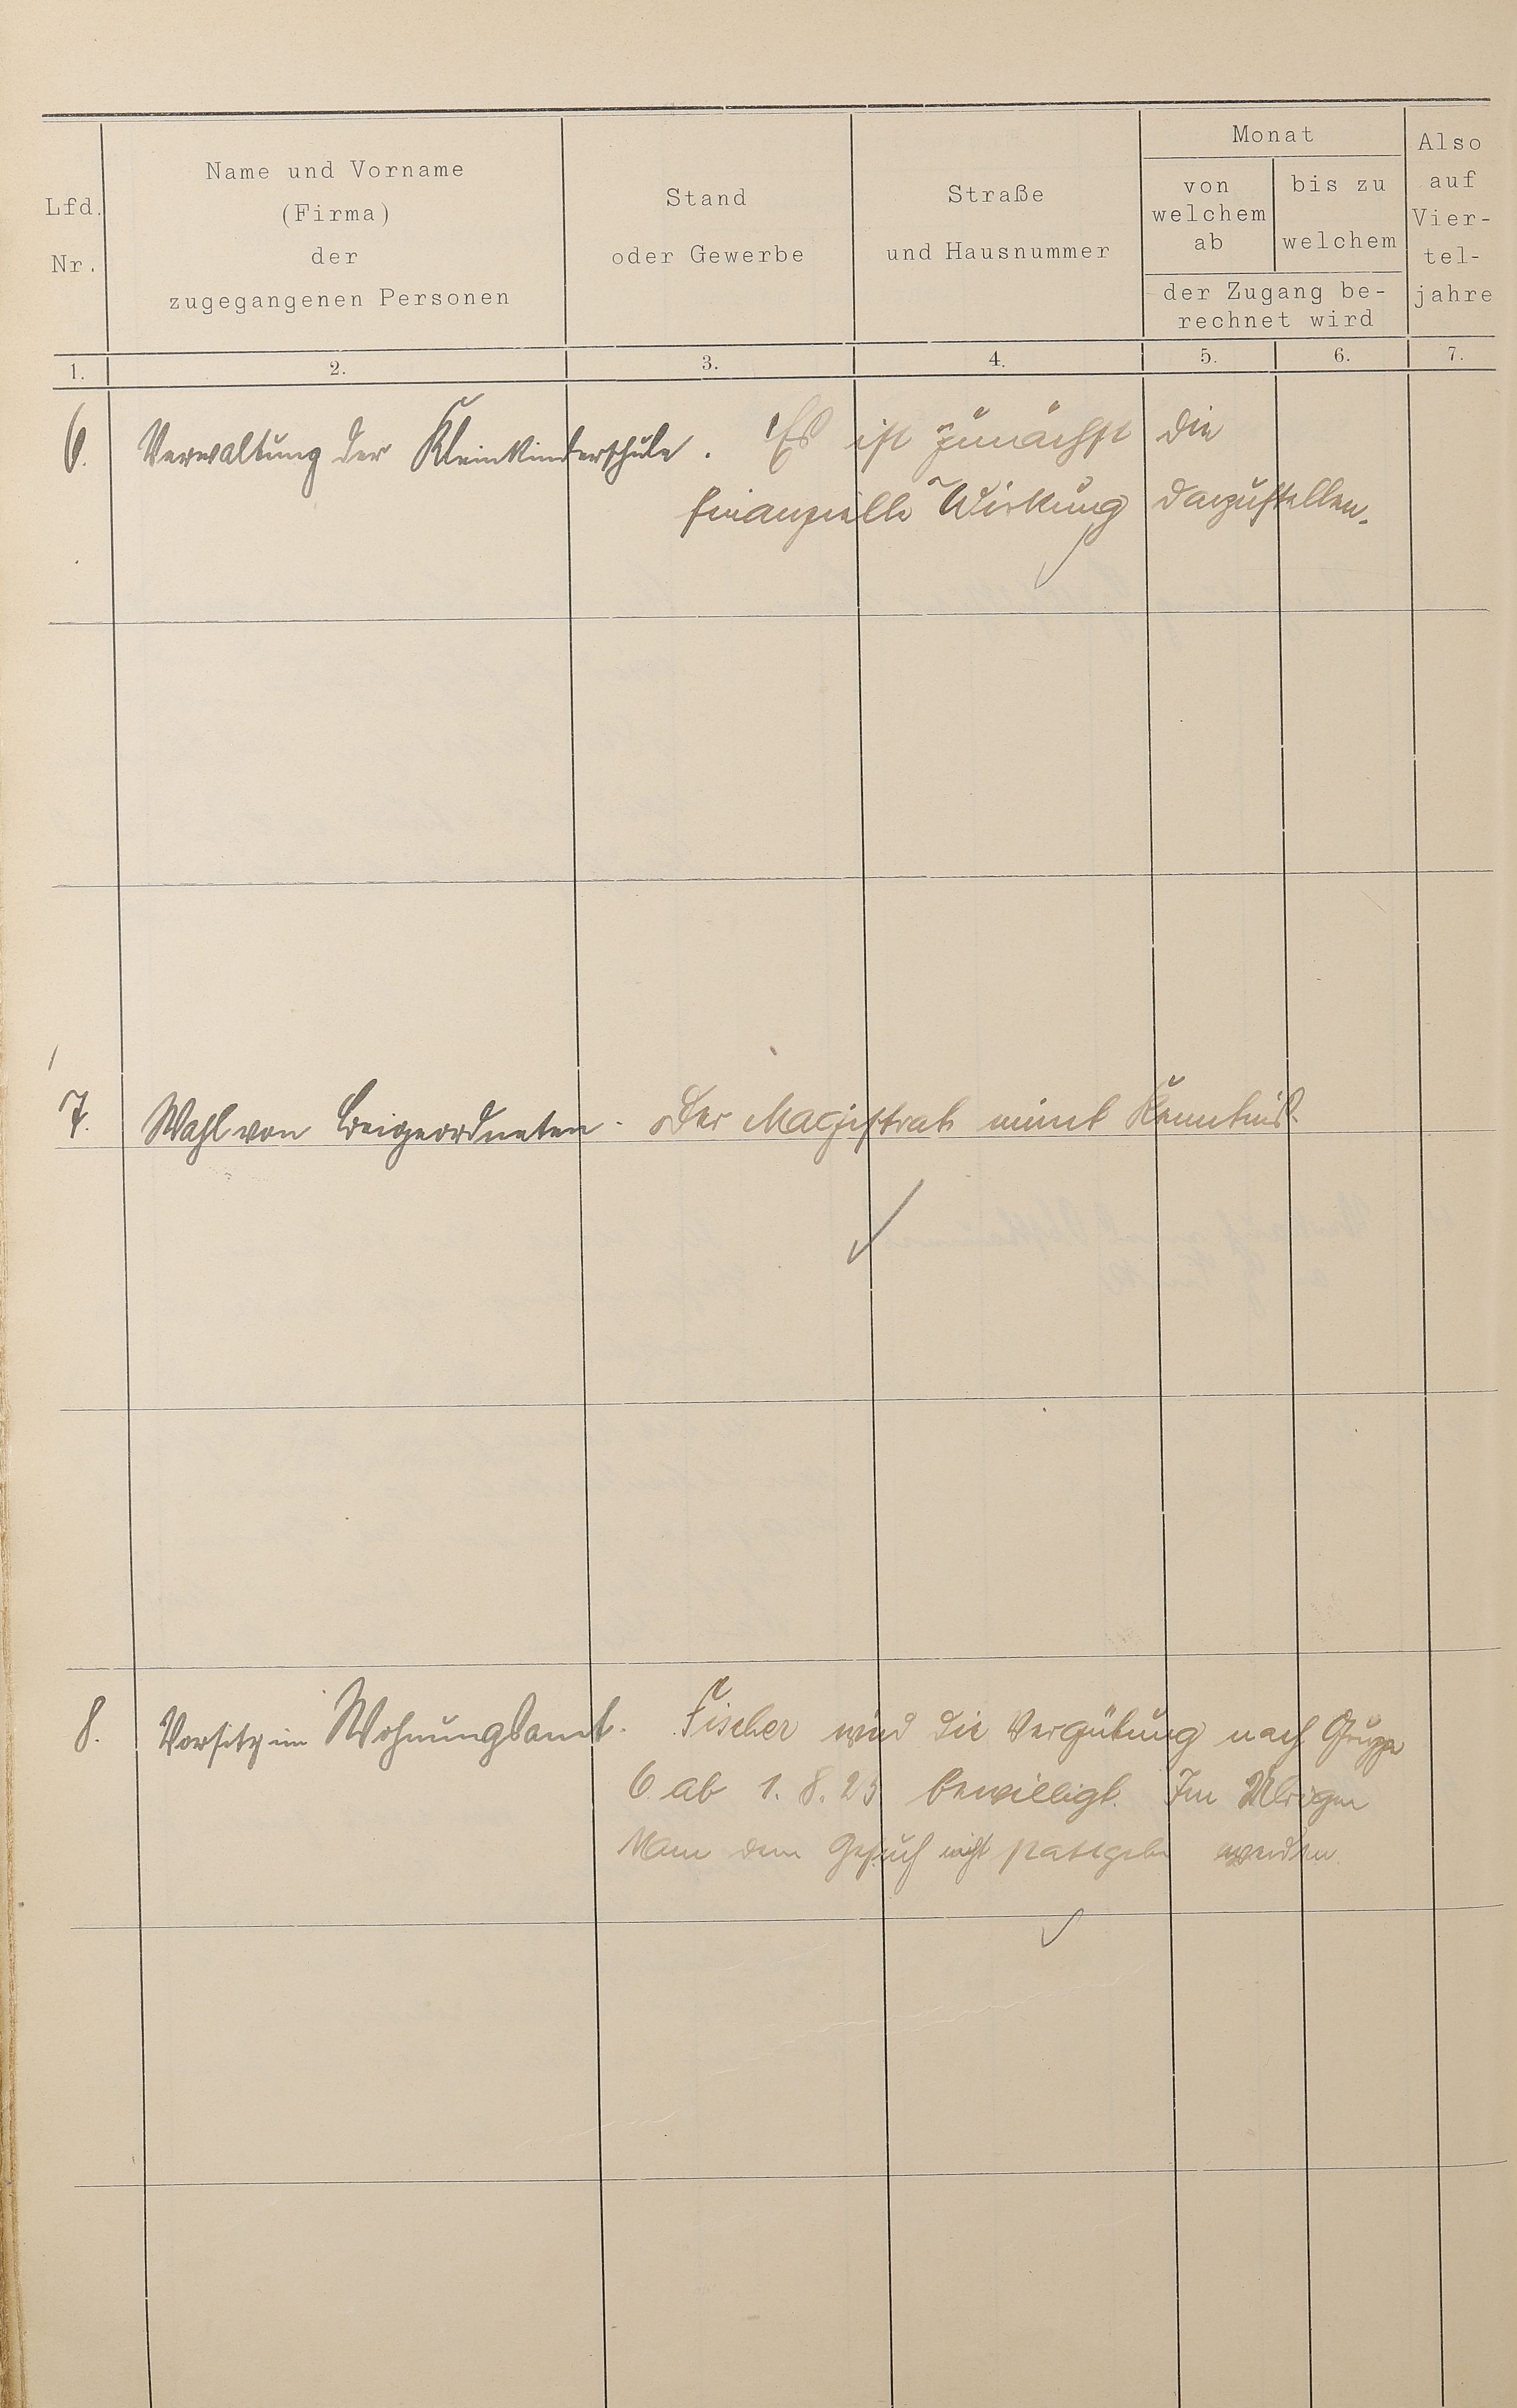 Lfd. Nr.
Name und Vorname
(Firma)
der
zugegangenen Personen
Stand
oder Gewerbe
Straße
und Hausnummer
Monat
von
welchem
ab
bis zu
welchem
der Zugang be-
rechnet wird
Also
auf
Vier-
tel-
jahre
1. 2. 3. 4. 5. 6. 7.
6. Verwaltung der Kleinkinderschule. Es ist zunächst die
finanzielle Wirkung darzustellen.
7. Wahl von Beigeordneten. Der Magistrat nimt Kenntnis.
8. Vorsitz im Wohnungsamt. Fischer wird die Vergütung nach Gruppe
6 ab 1. 8. 25 bewilligt. Im Übrigen
kann dem Gesuch nicht stattgeben werden.